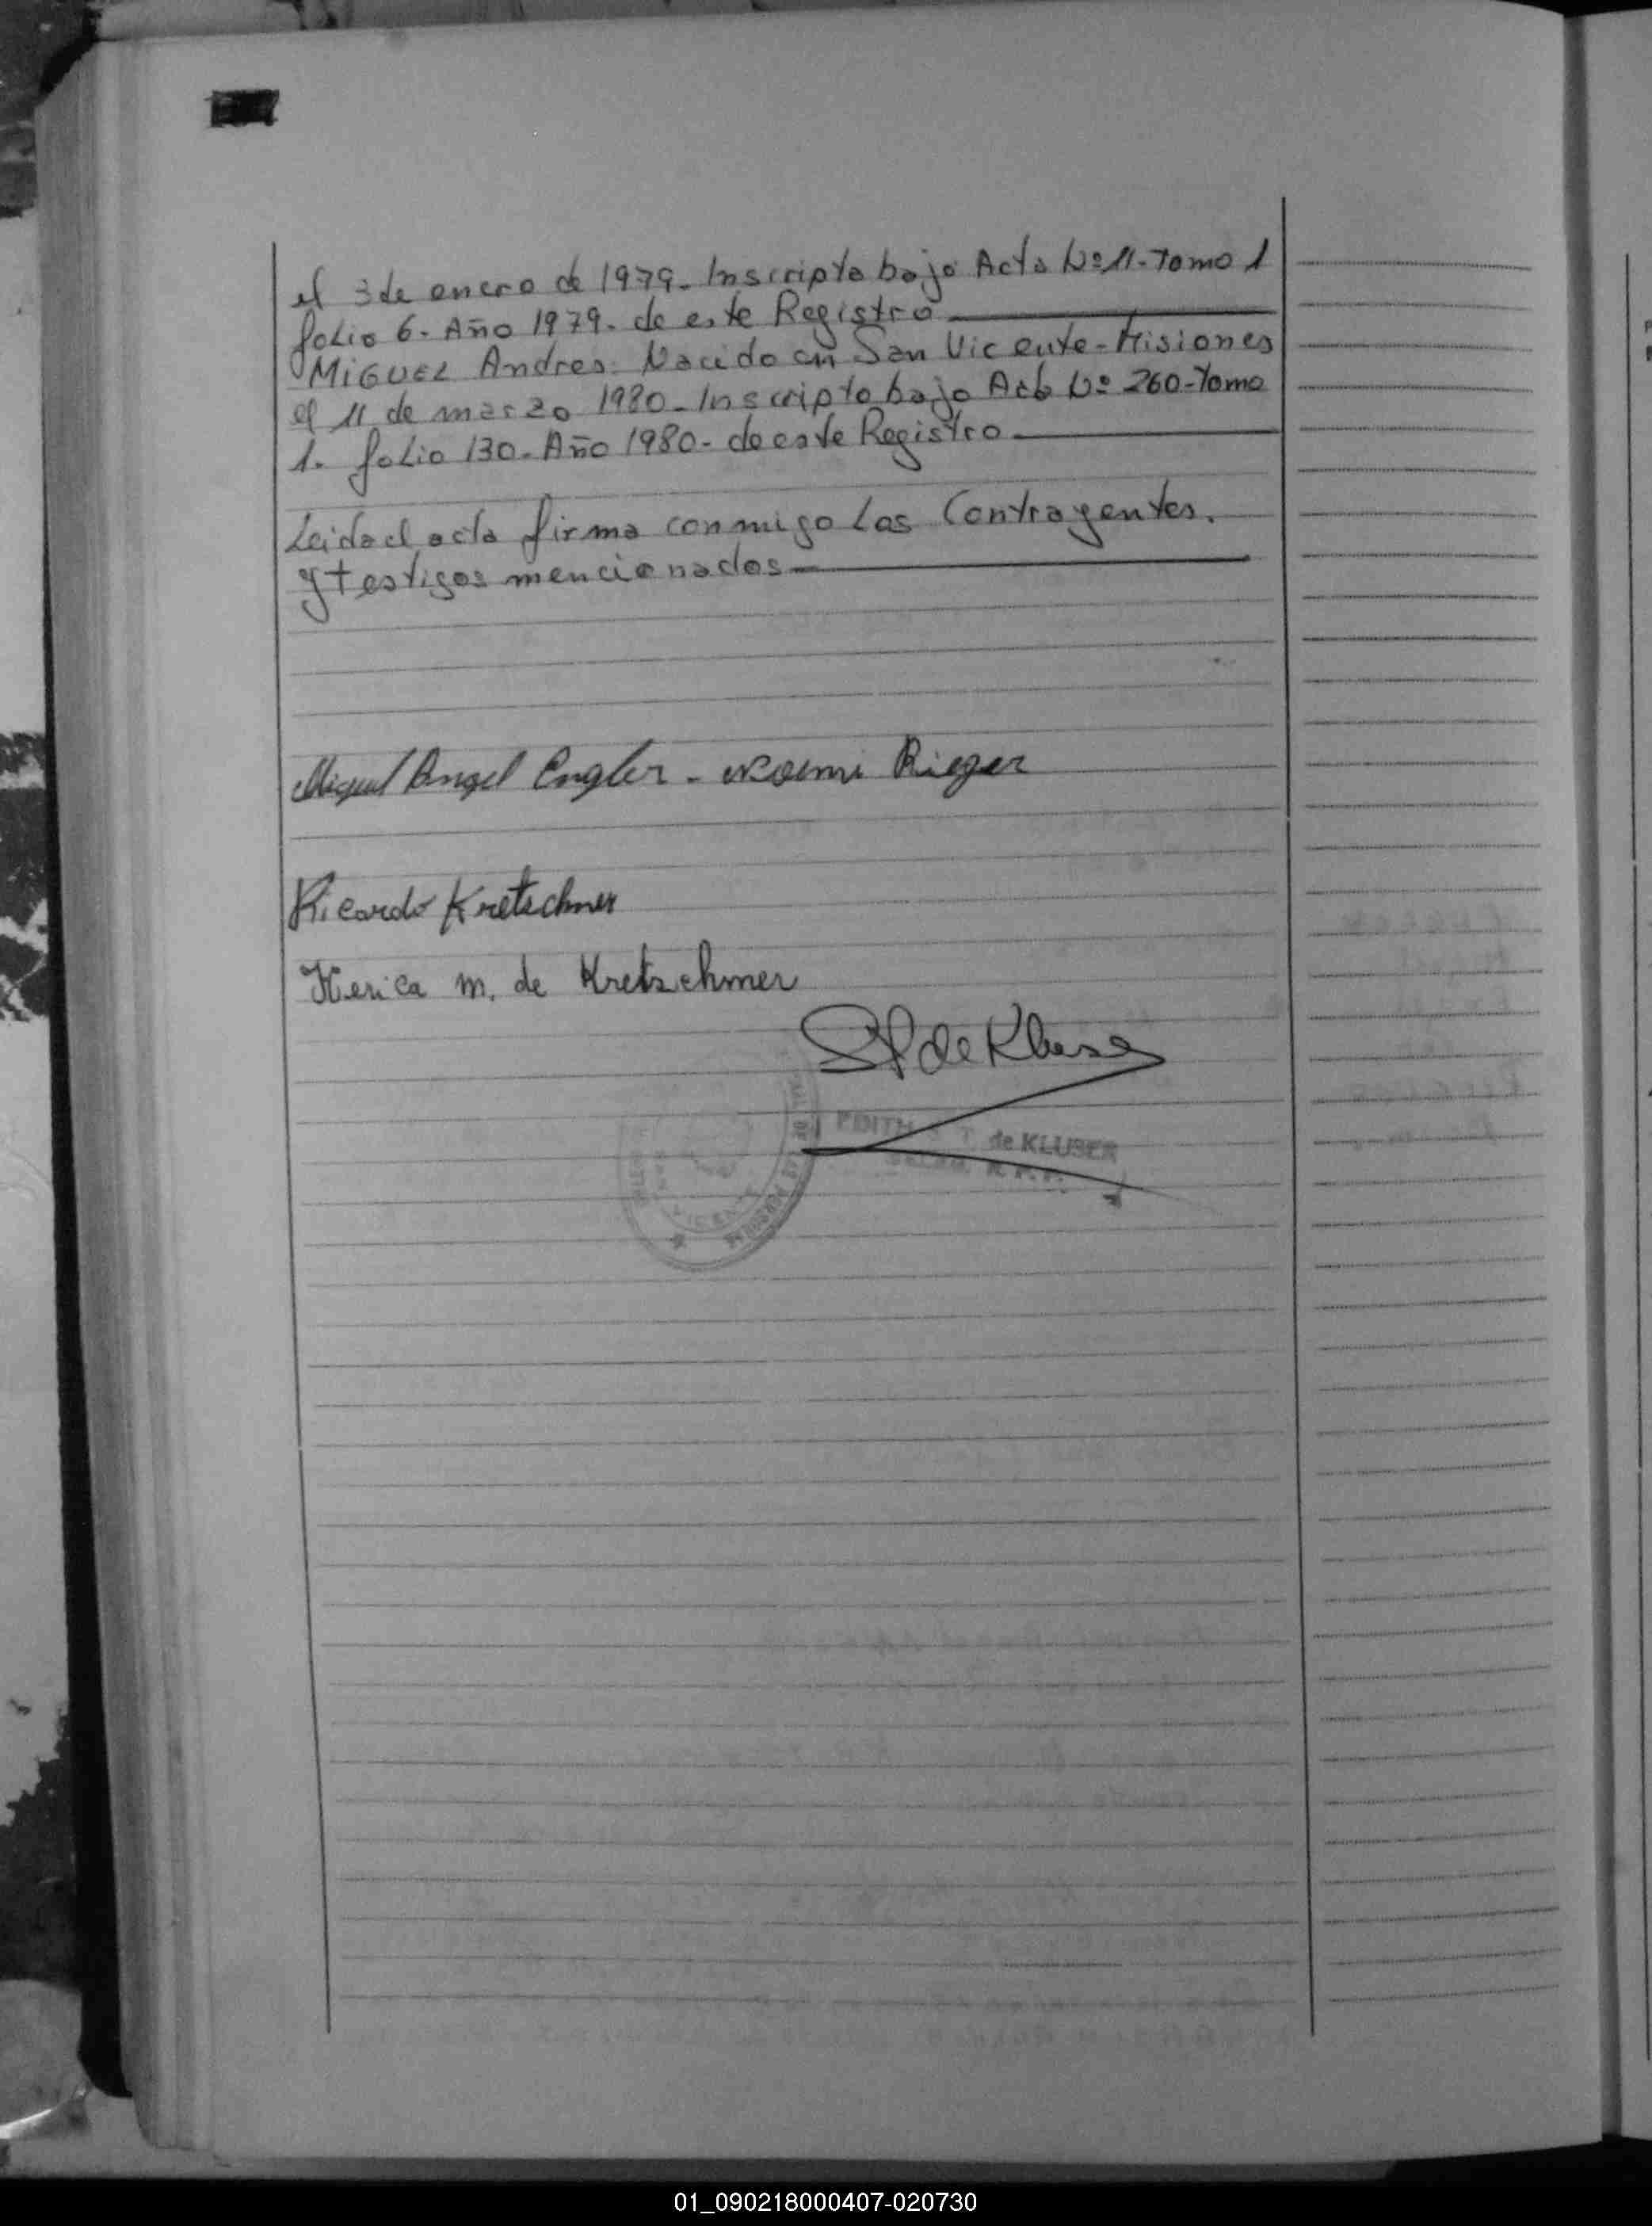 el 3 de enero de 1979. Inscripta bajo Acta Nº 11-Tomo 1
folio 6- Año 1979. de este Registro
MIGUEL Andres: Nacido en San Vicente-Misiones
el 11 de marzo 1980- Inscripto bajo Acta Nº 260-Tomo
1. folio 130- Año 1980- de este Registro
Leida el acta firma conmigo los Contrayentes.
y testigos mencionados
Miguel Angel Engler - Noemi Rieger
Ricardo Kretschmer
Herica m. de Kretzschmer
de Kluser
EDITH T. de KLUSER
VICENTE
01_090218000407-020730